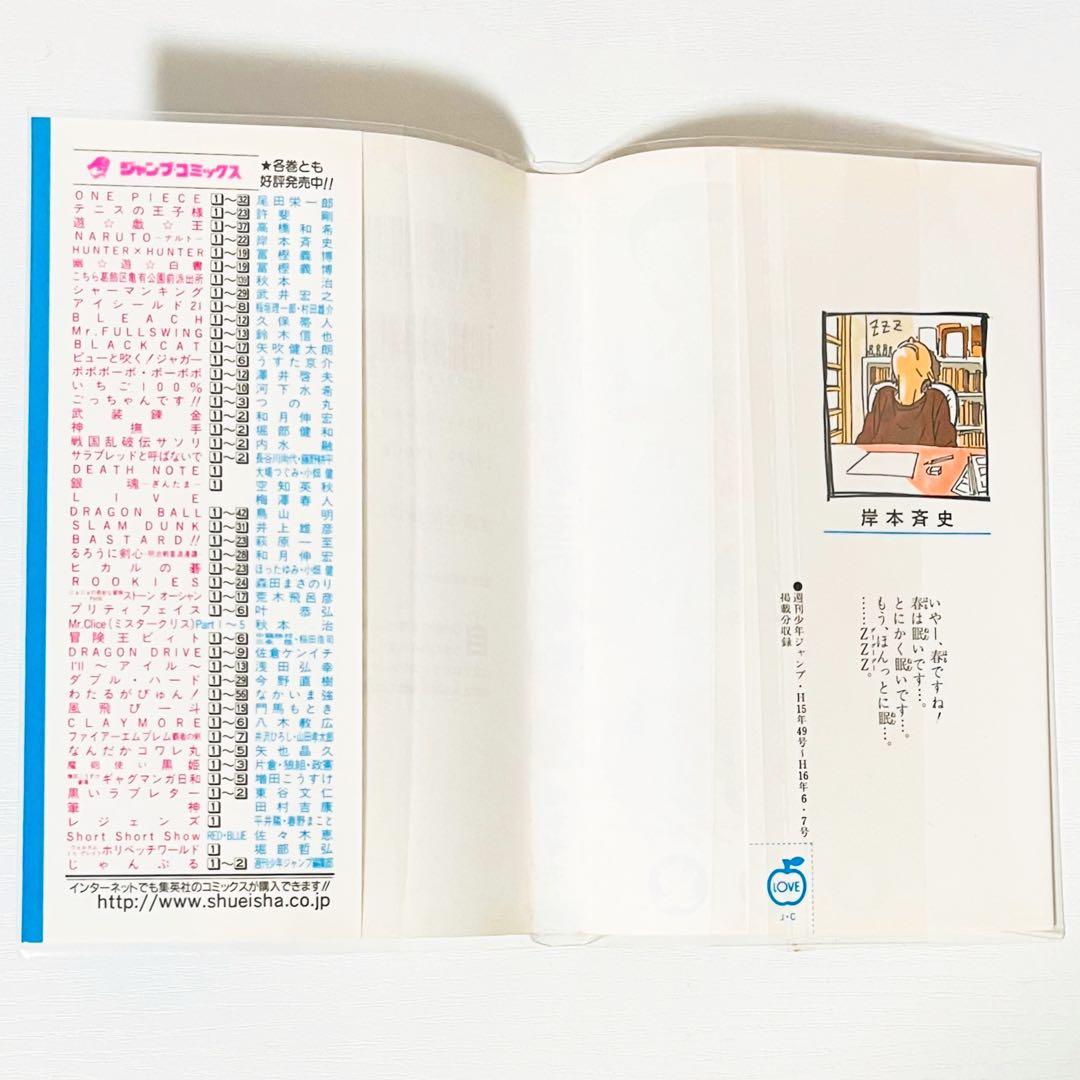 ジャンプコミックス
★各巻とも
好評発売中!!
ONE PIECE 1〜32 尾田栄一郎
テニスの王子様 1〜23 許斐 剛
遊☆戯☆王 1〜37 高橋和希
NARUTO―ナルト― 1〜22 岸本斉史
HUNTER×HUNTER 1〜19 冨樫義博
幽☆遊☆白書 1〜19 冨樫義博
こちら葛飾区亀有公園前派出所 秋本 治
シャーマンキング 1〜29 武井宏之
アイシールド21 1〜8 稲垣理一郎・村田雄介
BLEACH 1〜12 久保帯人
Mr.FULLSWING 1〜13 鈴木信也
BLACK CAT 1〜17 矢吹健太朗
ピューと吹く!ジャガー 1〜6 うすた京介
ボボボーボ・ボーボボ 1〜12 澤井啓夫
いちご100% 1〜10 河下水希
ごっちゃんです!! 1〜3 つの丸
武装錬金 1〜2 和月伸宏
神撫手 1〜2 堀部健和
戦国乱破伝サソリ 1〜2 内水 融
サラブレッドと呼ばないで 1〜2 長谷川尚代・藤野耕平
DEATH NOTE 1 大場つぐみ・小畑 健
銀魂―ぎんたま― 1 空知英秋
LIVE 梅澤春人
DRAGON BALL 1〜42 鳥山 明
SLAM DUNK 1〜31 井上雄彦
BASTARD!! 1〜23 萩原一至
るろうに剣心・明治剣客浪漫譚・ 1〜28 和月伸宏
ヒカルの碁 1〜23 ほったゆみ・小畑 健
ROOKIES 1〜24 森田まさのり
ストーン オーシャン 1〜17 荒木飛呂彦
プリティフェイス 1〜6 叶 恭弘
Mr.Clice(ミスタークリス) Part 1〜5 秋本 治
冒険王ビィト 1〜6 三条 陸・稲田浩司
DRAGON DRIVE 1〜9 佐倉ケンイチ
I'll〜アイル〜 1〜13 浅田弘幸
ダブル・ハード 1〜29 今野直樹
わたるがぴゅん! 1〜56 なかいま強
風飛び一斗 1〜19 門馬もとき
CLAYMORE 1〜6 八木教広
ファイアーエムブレム覇者の剣 1〜7 井沢ひろし・山田孝太郎
なんだかコワレ丸 1〜5 矢也晶久
魔砲使い黒姫 1〜3 片倉・狼組・政憲
増田こうすけ劇場 ギャグマンガ日和 1〜5 増田こうすけ
黒いラブレター 1〜2 東谷文仁
筆神 1 田村吉康
レジェンズ 1 平井陽・春野まこと
Short Short Show RED・BLUE 佐々木恵
ホリベッチワールド 1 堀部哲弘
じゃんぷる 1〜2 週刊少年ジャンプ編集部
インターネットでも集英社のコミックスが購入できます!!
http://www.shueisha.co.jp
ZZZ
岸本斉史
いやー、春ですね!
春は眠いです…。
とにかく眠いです…。
もう、ほんっとに眠…。
……ZZZ。
●週刊少年ジャンプ・H15年49号〜H16年6・7号
掲載分収録
LOVE
J・C